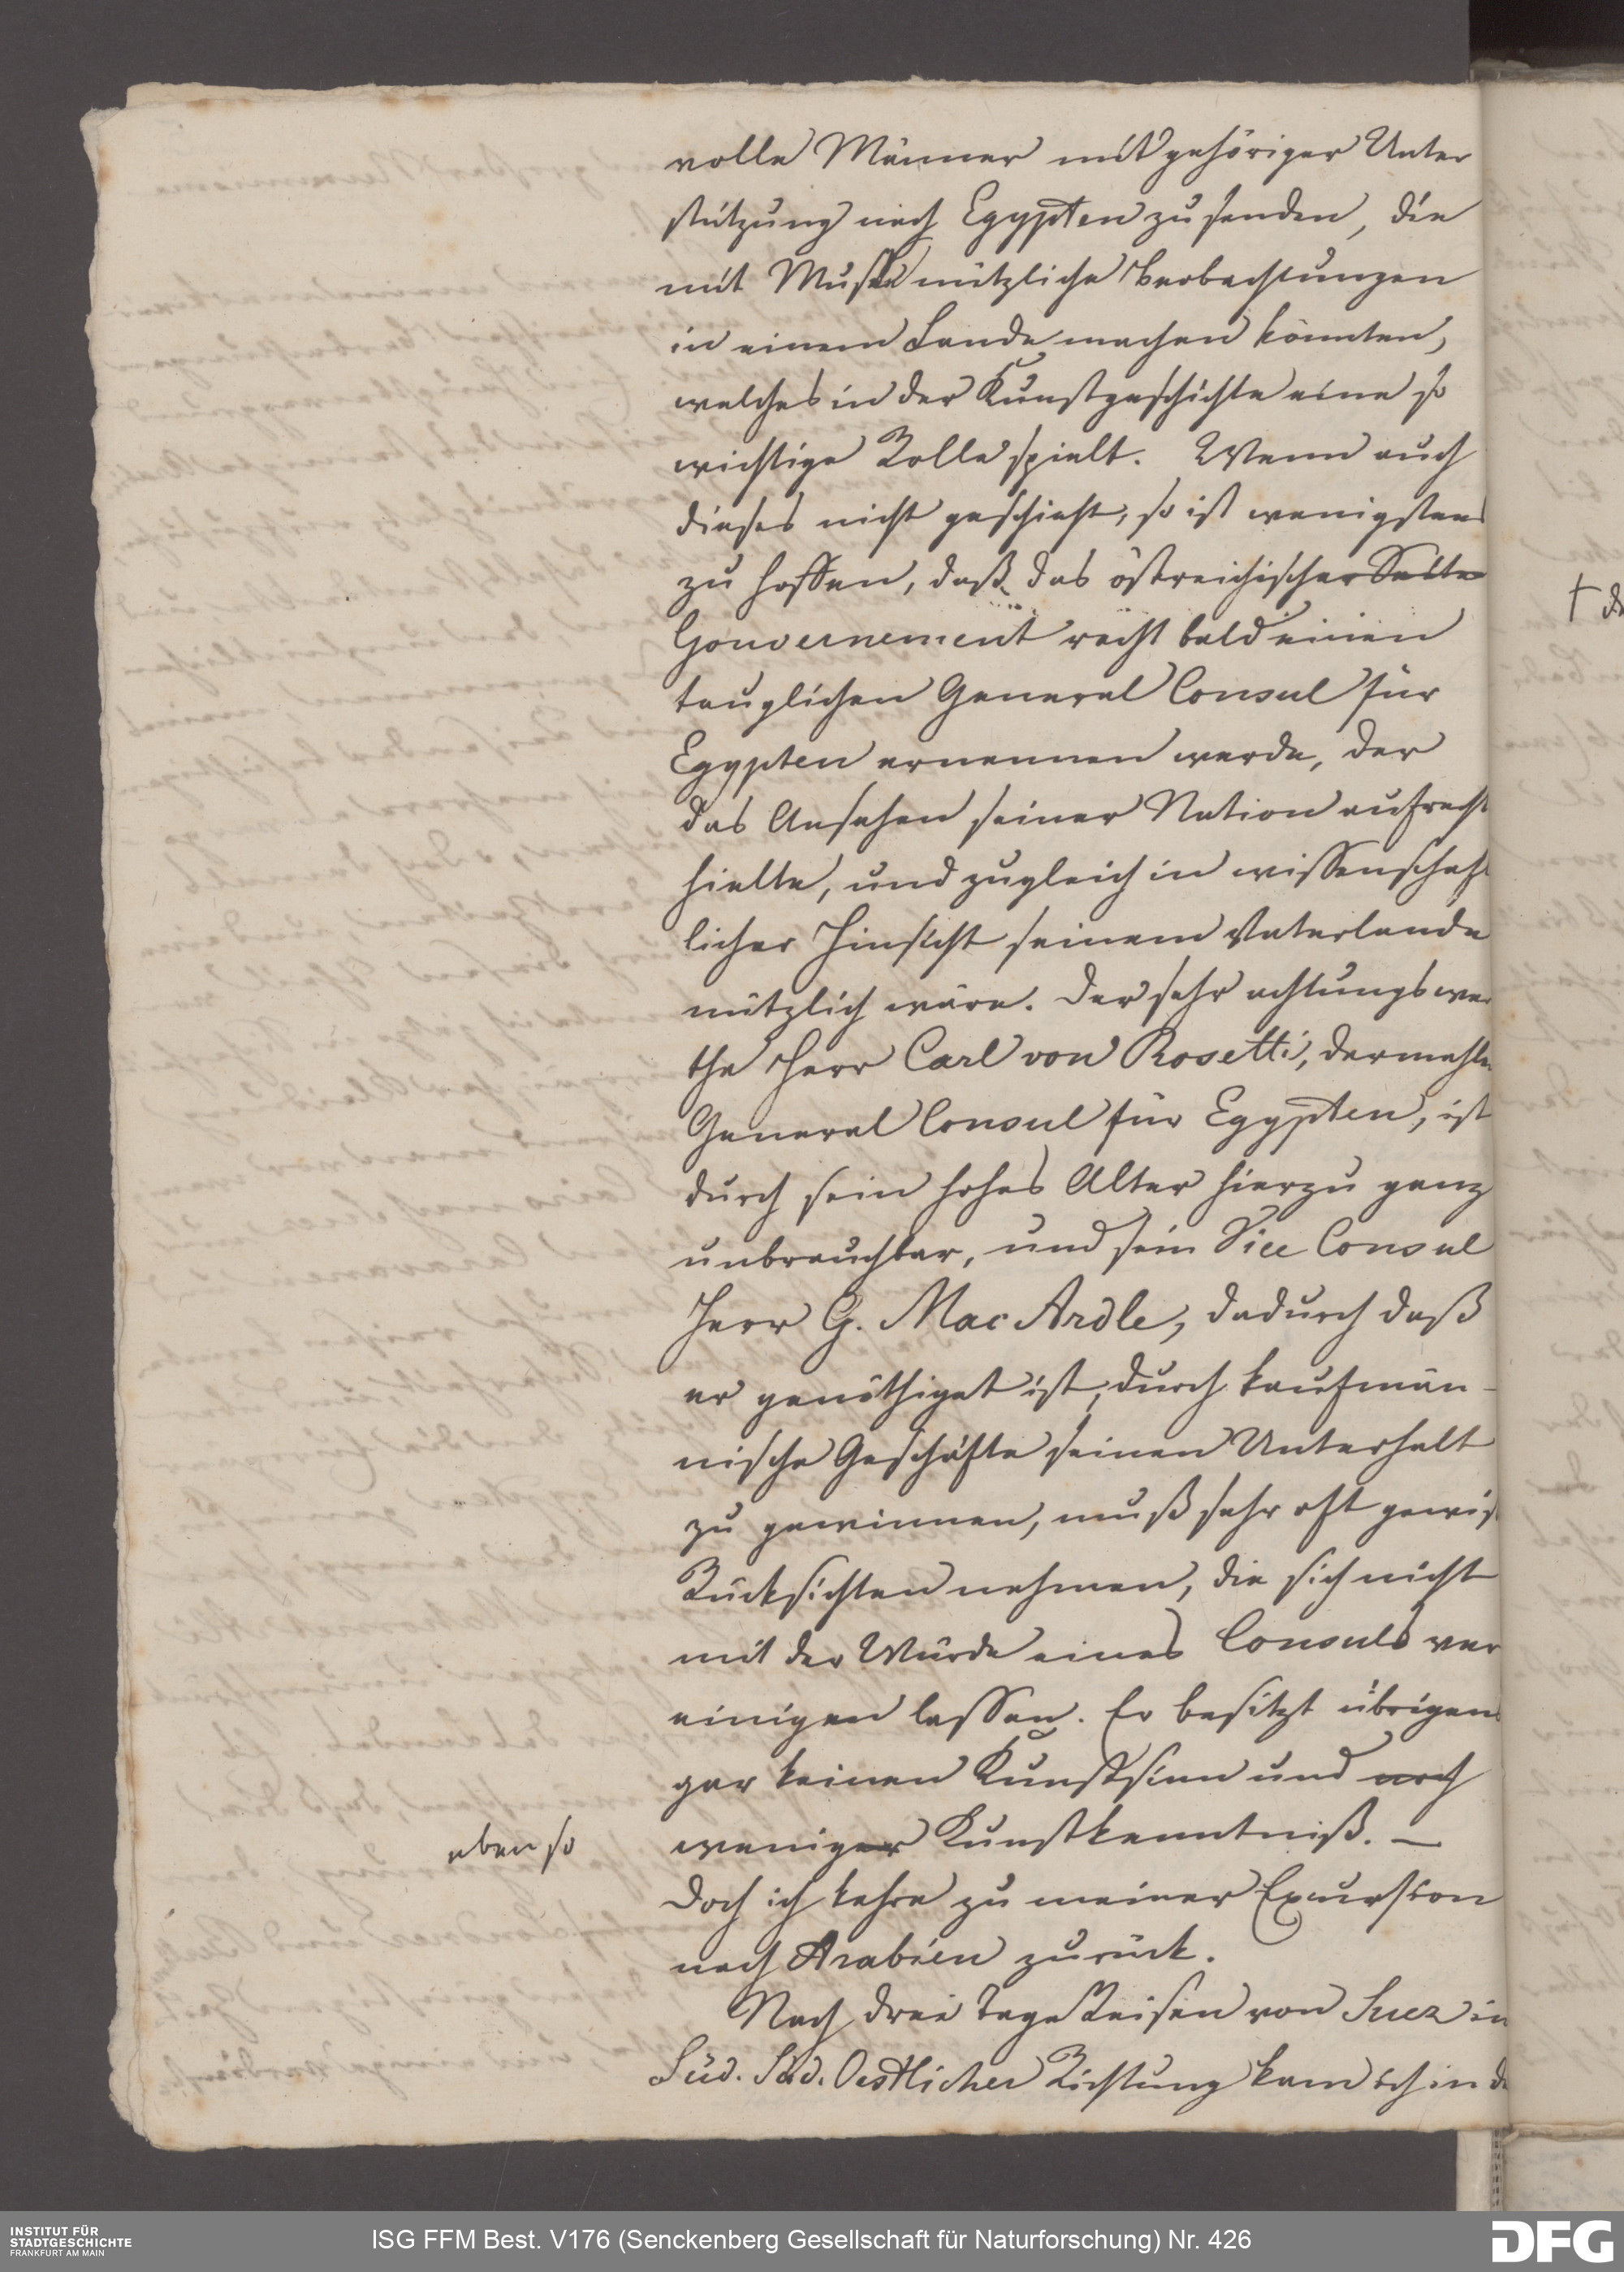 volle Männer mit gehöriger Unter
stützung nach Egypten zu senden, die
mit Muse nützliche Beobachtungen
in einem Lande machen könnten,
welches in der Kunstgeschichte eine so
wichtige Rolle spielt. Wenn auch
dieses nicht geschieht, so ist wenigstens
zu hoffen, daß das östreichischer Seite
Gouvernement recht bald einen
tauglichen General Consul für
Egypten ernennen werde, der
das Ansehen seiner Nation aufrecht
hielte, und zugleich in wissenschaft
licher Hinsicht seinem Vaterlande
nützlich wäre. Der sehr achtungswer
the Herr Carl von Rosetti, dermahle
General Consul für Egypten, ist
durch sein hohes Alter hierzu ganz
unbrauchbar, und sein Vice Consul
Herr G. Mac Ardle, dadurch daß
er genöthiget ist, durch kaufmän-
nische Geschäfte seinen Unterhalt
zu gewinnen, muß sehr oft gewis
Rücksichten nehmen, die sich nicht
mit der Würde eines Consuls ver
einigen lassen. Er besitzt übrigens
gar keinen Kunstsinn und noch
ebenso
weniger Kunstkenntniß. —
Doch ich kehre zu meiner Excursion
nach Arabien zurück.
Nach drei Tage Reisen von Suez in
Süd. Süd. Oestlicher Richtung kam ich in de
INSTITUT FÜR
STADTGESCHICHTE
FRANKFURT AM MAIN
ISG FFM Best. V176 (Senckenberg Gesellschaft für Naturforschung) Nr. 426
DFG